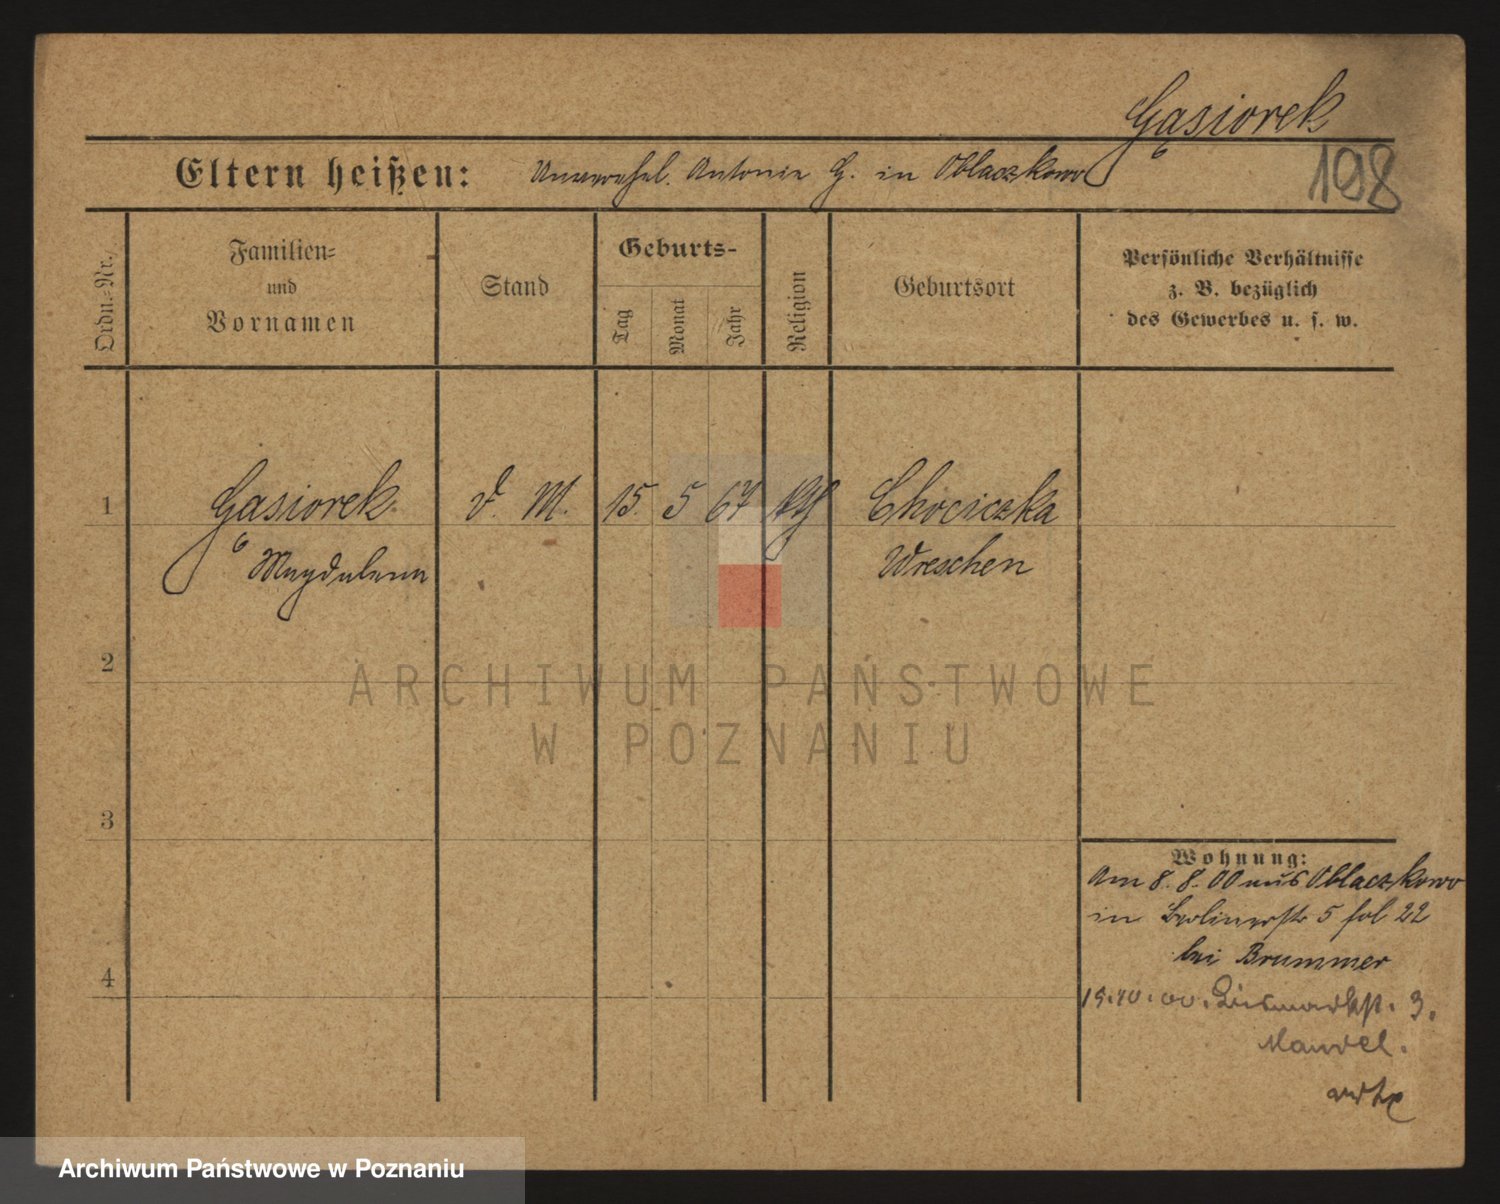 Gąsiorek
198
Eltern heißen: Unverehel. Antonie G. in Oblaczkowo
Ordn.-Nr.
Familien-
und
Vornamen
Stand
Geburts-
Tag
Monat
Jahr
Religion
Geburtsort
Persönliche Verhältnisse
z. B. bezüglich
des Gewerbes u. s. w.
1 Gąsiorek d. M. 15. 5 67 Chociczka
Magdalena Wreschen
2
ARCHIWUM PAŃSTWOWE
W POZNANIU
3
Wohnung:
Am 8. 8. 00 aus Oblaczkowo
in Berlinerstr 5 fol 22
bei Brummer
15.10.00. Bismarkst. 3.
Mandel.
4
Archiwum Państwowe w Poznaniu